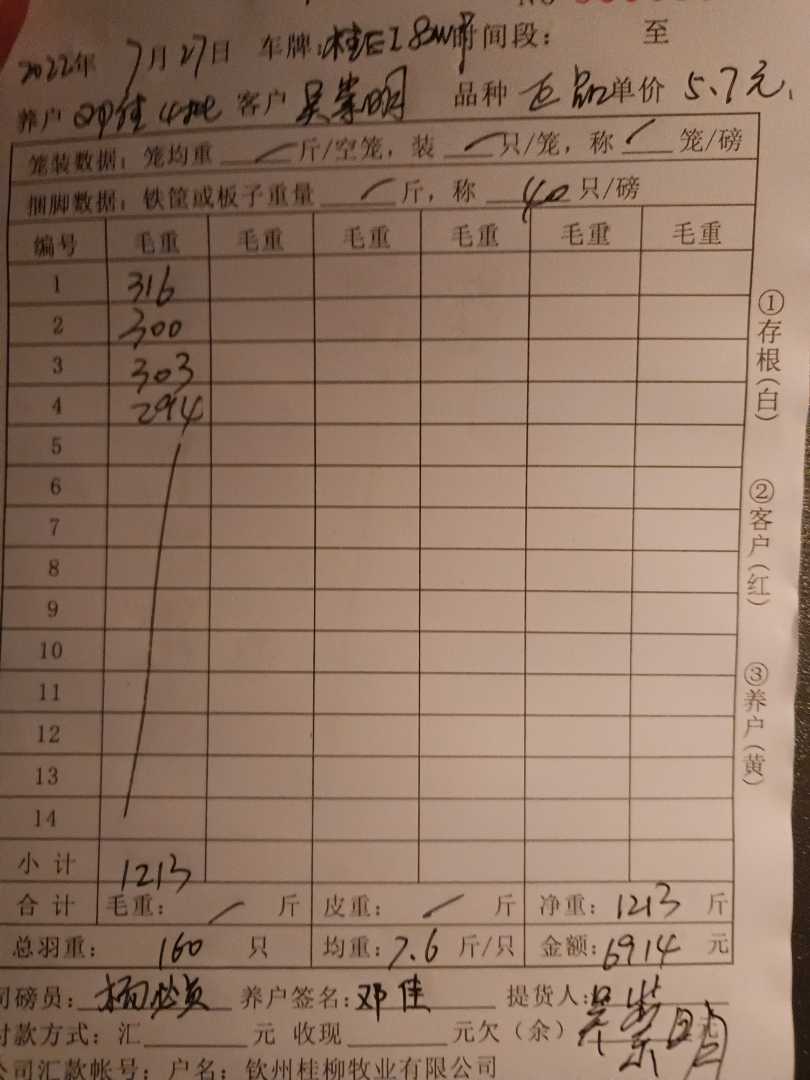 2022年 7月27日 车牌: 时间段: 至
养户 邓佳 客户 吴崇明 品种 单价 5.7元
笼装数据: 笼均重 斤/空笼, 装 只/笼, 称 笼/磅
捆脚数据: 铁筐或板子重量 斤, 称 40 只/磅
编号 毛重 毛重 毛重 毛重 毛重 毛重
1 316
2 300
3 303
4 294
5
6
7
8
9
10
11
12
13
14
小计 1213
合计 毛重: 斤 皮重: 斤 净重: 1213 斤
总羽重: 160 只 均重: 7.6 斤/只 金额: 6914 元
司磅员: 养户签名: 邓佳 提货人: 吴崇明
付款方式: 汇 元 收现 元欠(余) 元
公司汇款帐号: 户名: 钦州桂柳牧业有限公司
①存根(白)
②客户(红)
③养户(黄)